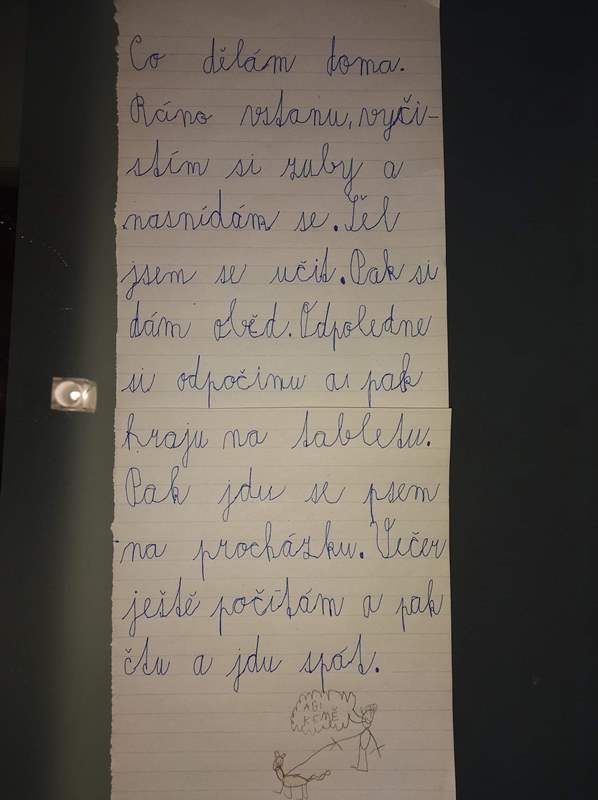 Co dělám doma.
Ráno vstanu, vyči-
stím si zuby a
nasnídám se. Šel
jsem se učit. Pak si
dám oběd. Odpoledne
si odpočinu a pak
hraju na tabletu.
Pak jdu se psem
na procházku. Večer
ještě počítám a pak
čtu a jdu spát.
ABI
KEMĚ